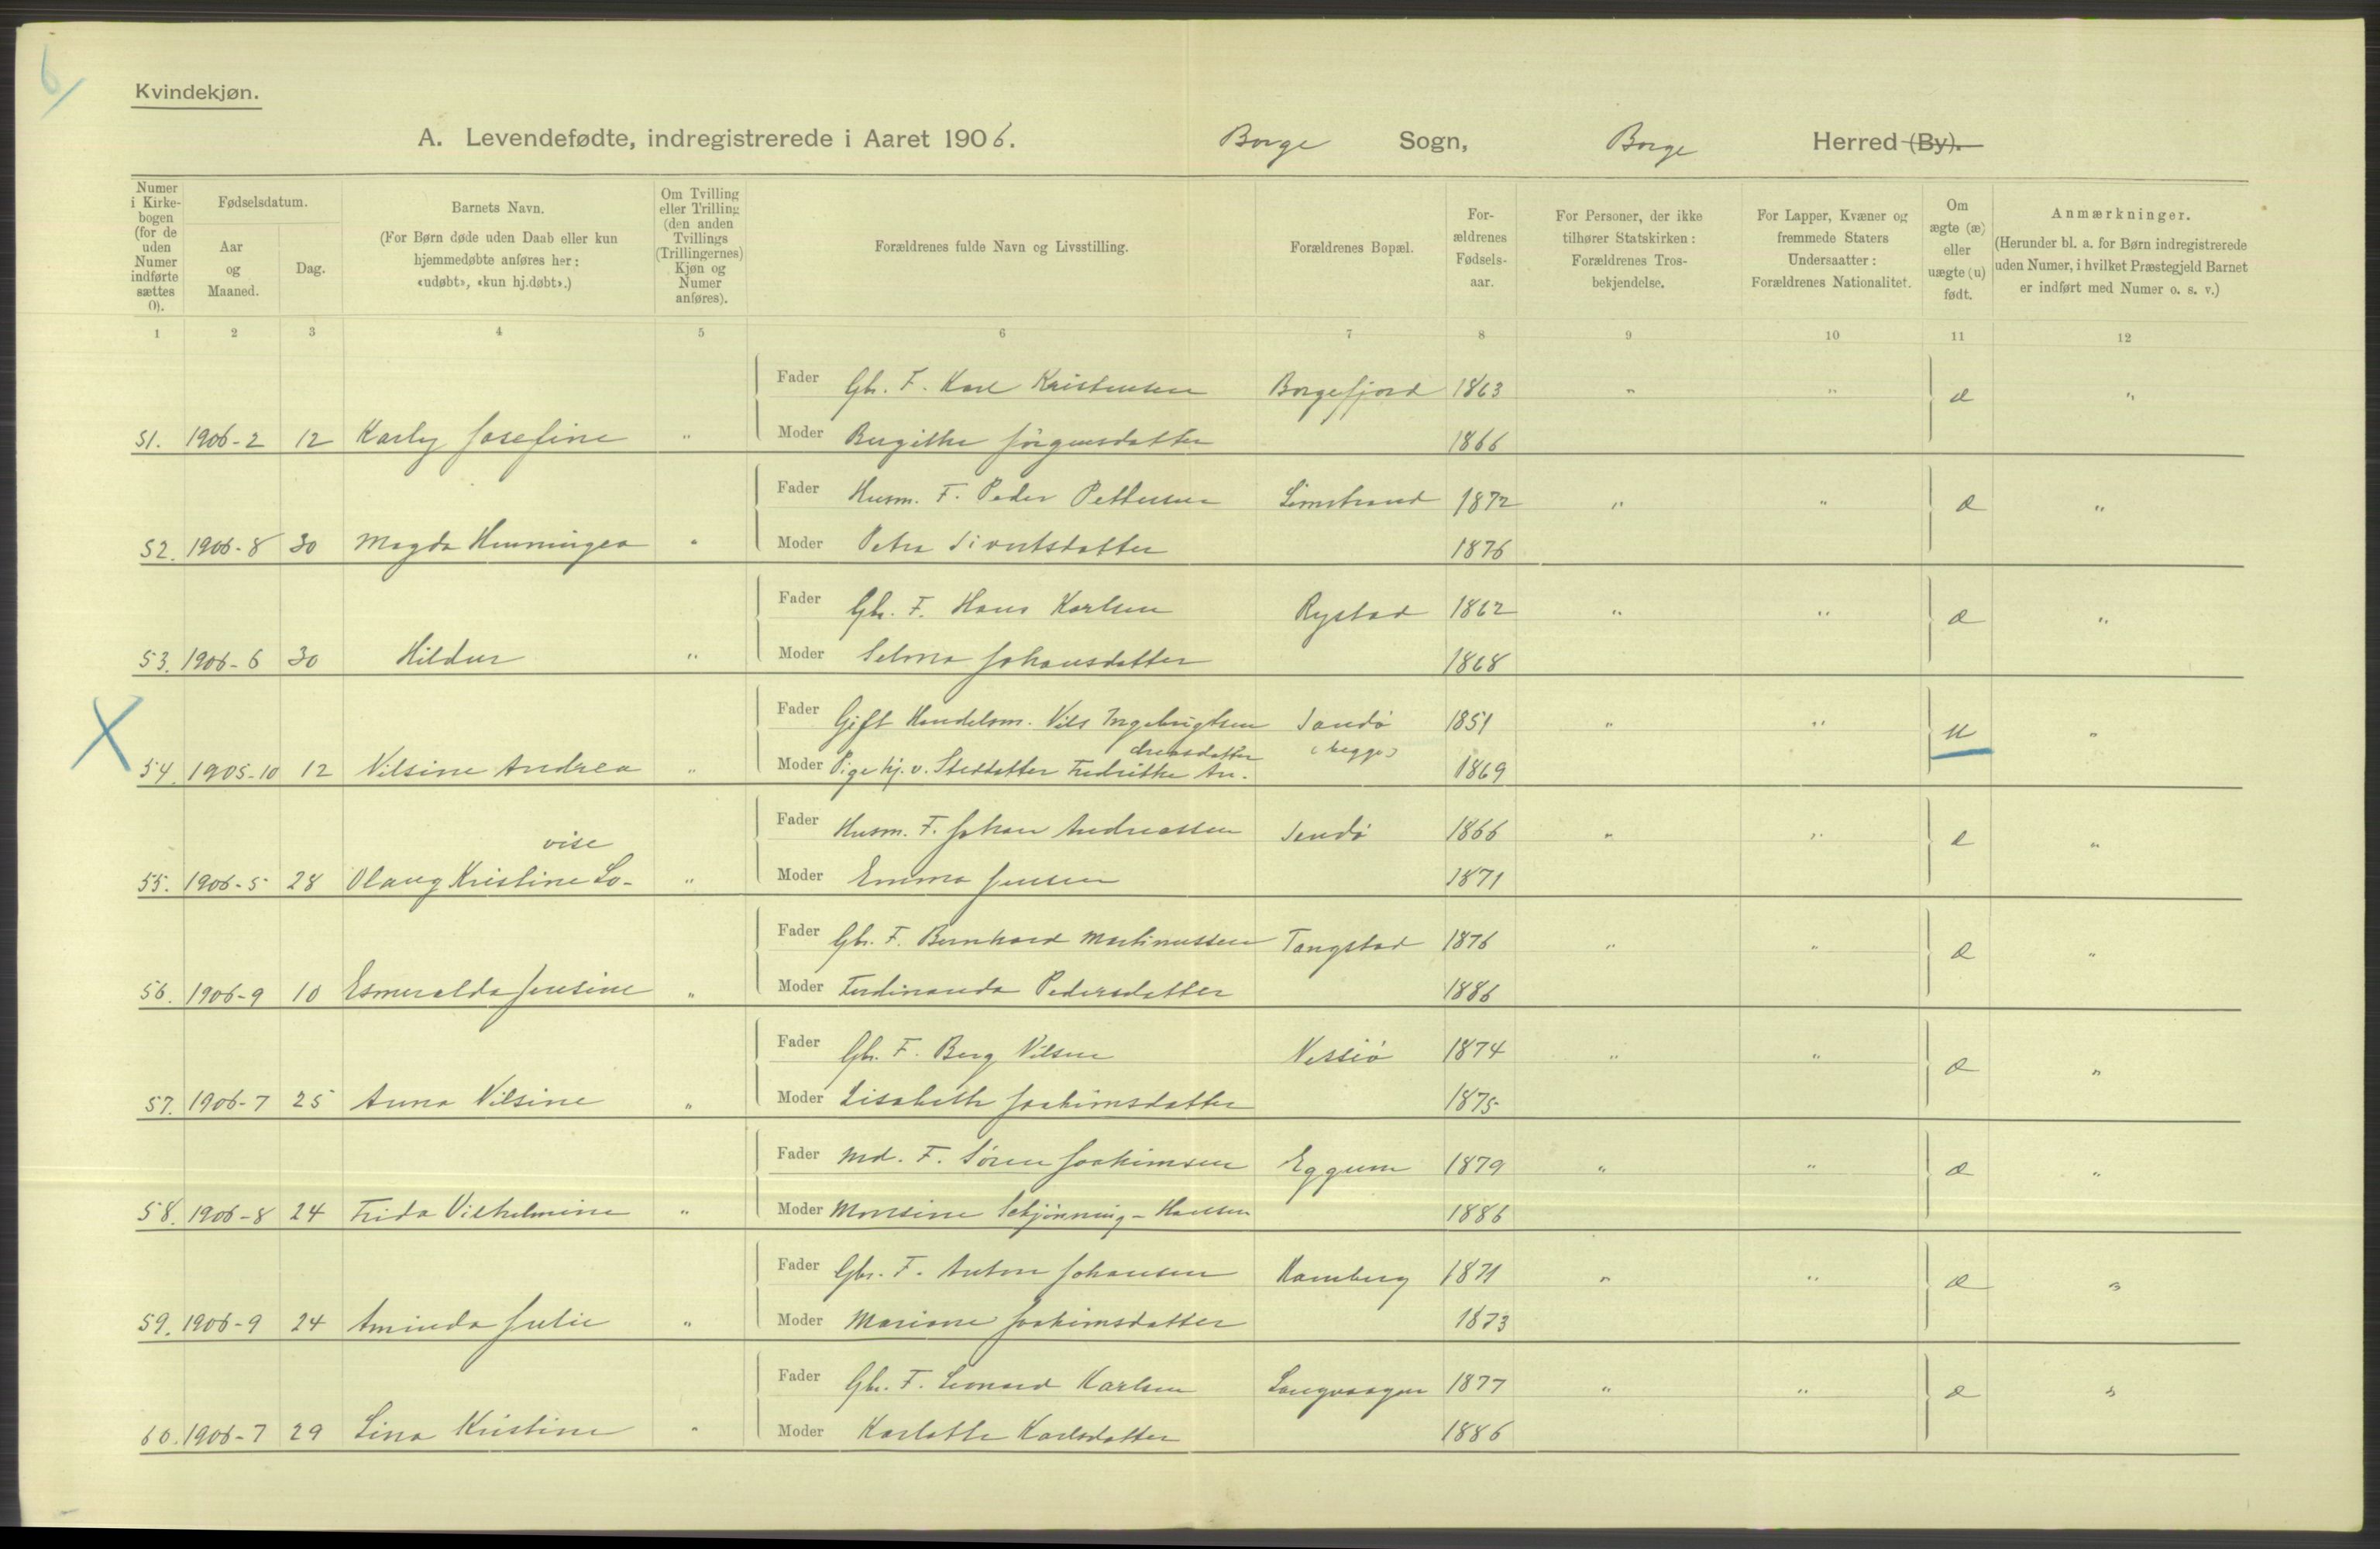 6
Kvindekjøn.
A. Levendefødte, indregistrerede i Aaret 1906. Borge Sogn, Borge Herred (By).
Numer i Kirkebogen (for de uden Numer indførte sættes 0). Fødselsdatum. Aar og Maaned. Dag. Barnets Navn. (For Børn døde uden Daab eller kun hjemmedøbte anføres her: «udøbt», «kun hj.døbt».) Om Tvilling eller Trilling (den anden Tvillings (Trillingernes) Kjøn og Numer anføres). Forældrenes fulde Navn og Livsstilling. Forældrenes Bopæl. Forældrenes Fødselsaar. For Personer, der ikke tilhører Statskirken: Forældrenes Trosbekjendelse. For Lapper, Kvæner og fremmede Staters Undersaatter: Forældrenes Nationalitet. Om ægte (æ) eller uægte (u) født. Anmærkninger. (Herunder bl. a. for Børn indregistrerede uden Numer, i hvilket Præstegjeld Barnet er indført med Numer o. s. v.)
1 2 3 4 5 6 7 8 9 10 11 12
Fader Gb. F. Karl Kristensen Borgefjord 1863 " " æ "
51. 1906-2 12 Karly Josefine " Moder Bergitha Jörgensdatter 1866
Fader Husm. F. Peder Pettersen Limstrand 1872 " " æ "
52. 1906-8 30 Magda Henningea " Moder Petra Sivertsdatter 1876
Fader Gb. F. Hans Karlsen Rystad 1862 " " æ "
53. 1906-6 30 Hildur " Moder Selma Johansdatter 1868
Fader Gift Handelsm. Nils Ingebrigtsen Sandö 1851 " " u "
dreasdatter (begge)
54. 1905-10 12 Nilsine Andrea " Moder Pige hj. v. Stedatter Fredrikke An- 1869
Fader Husm. F. Johan Andreassen Sandö 1866 " " æ "
vise
55. 1906-5 28 Olaug Kristine Lo- " Moder Emma Jensen 1871
Fader Gb. F. Bernhard Martinussen Tangstad 1876 " " æ "
56. 1906-9 10 Esmeralda Jensine " Moder Ferdinanda Pedersdatter 1886
Fader Gb. F. Berg Nilsen 1874 " " æ "
57. 1906-7 25 Anna Nilsine " Moder Lisabeth Joakimsdatter 1875
Fader Md. F. Sören Joakimsen Eggum 1879 " " æ "
58. 1906-8 24 Frida Vilhelmine " Moder Monsine Schjönning-Hansen 1886
Fader Gb. F. Anton Johansen Hamberg 1871 " " æ "
59. 1906-9 24 Aminda Julie " Moder Mariane Joakimsdatter 1873
Fader Gb. F. Leonard Karlsen Langvaagen 1877 " " æ "
60. 1906-7 29 Lina Kristine " Moder Karlotte Karlsdatter 1886